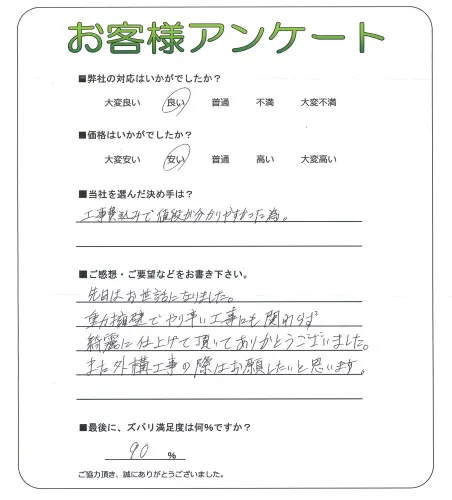 お客様アンケート
■弊社の対応はいかがでしたか?
大変良い 良い 普通 不満 大変不満
■価格はいかがでしたか?
大変安い 安い 普通 高い 大変高い
■当社を選んだ決め手は?
工事費込みで値段が分かりやすかった為。
■ご感想・ご要望などをお書き下さい。
先日はお世話になりました。
重力擁壁でやり辛い工事にも関わらず
綺麗に仕上げて頂いてありがとうございました。
また外構工事の際はお願したいと思います。
■最後に、ズバリ満足度は何%ですか?
90 %
ご協力頂き、誠にありがとうございました。